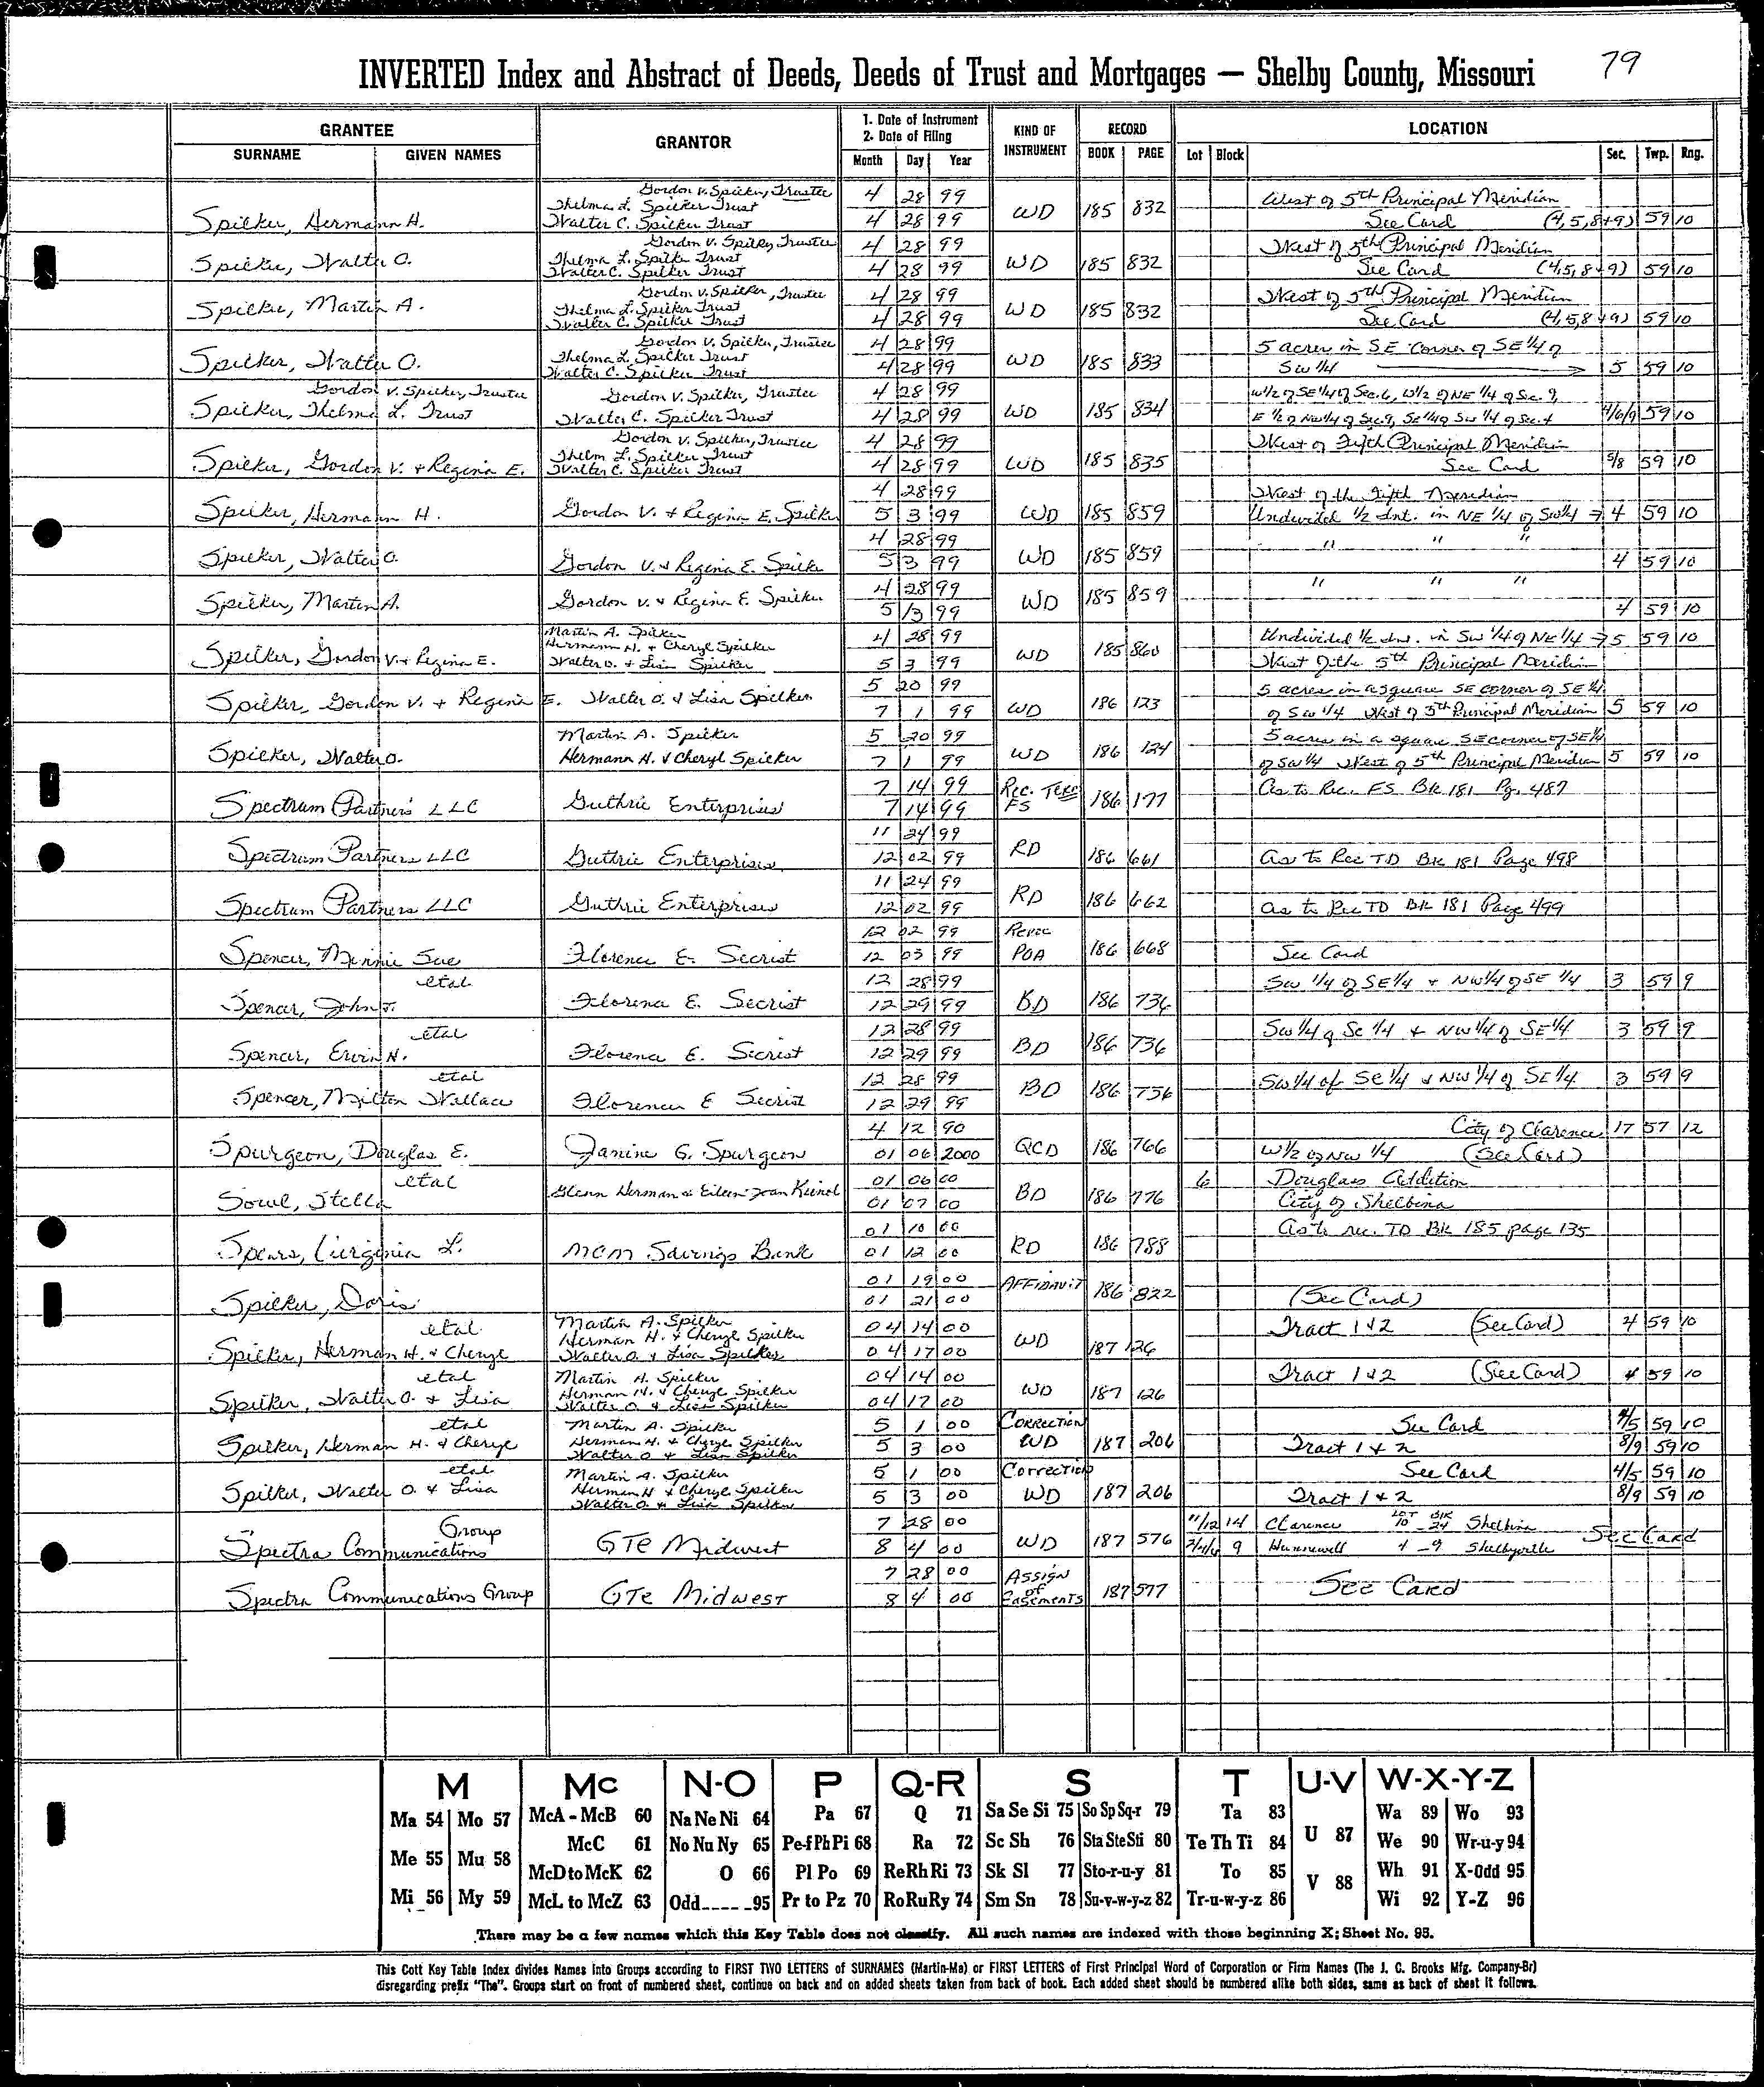 79
INVERTED Index and Abstract of Deeds, Deeds of Trust and Mortgages — Shelby County, Missouri
GRANTEE
SURNAME GIVEN NAMES
GRANTOR
1. Date of Instrument
2. Date of Filing
Month Day Year
KIND OF INSTRUMENT
RECORD
BOOK PAGE
LOCATION
Lot Block Sec. Twp. Rng.
Gordon V. Spilker, Trustee 4 28 99 West of 5th Principal Meridian
Thelma L. Spilker Trust
Spilker, Hermann H. Walter C. Spilker Trust 4 28 99 WD 185 832 See Card (4,5,8+9) 59 10
Gordon V. Spilker Trustee 4 28 99 West of 5th Principal Meridian
Spilker, Walter O. Thelma L. Spilker Trust
Walter C. Spilker Trust 4 28 99 WD 185 832 See Card (4,5,8+9) 59 10
Gordon V. Spilker, Trustee 4 28 99 West of 5th Principal Meridian
Spilker, Martin A. Thelma L. Spilker Trust
Walter C. Spilker Trust 4 28 99 WD 185 832 See Card (4,5,8+9) 59 10
Gordon V. Spilker, Trustee 4 28 99 5 acres in SE Corner of SE 1/4 of
Spilker, Walter O. Thelma L. Spilker Trust
Walter C. Spilker Trust 4 28 99 WD 185 833 SW 1/4 5 59 10
Gordon V. Spilker, Trustee Gordon V. Spilker, Trustee 4 28 99 W1/2 of SE1/4 of Sec. 6, W1/2 of NE 1/4 of Sec. 9,
Spilker, Thelma L. Trust Walter C. Spilker Trust 4 28 99 WD 185 834 E 1/2 of NW1/4 of Sec. 9, SE1/4 of SW 1/4 of Sec. 4 4/6/9 59 10
Gordon V. Spilker, Trustee 4 28 99 West of Fifth Principal Meridian
Thelm L. Spilker Trust
Spilker, Gordon V. + Regina E. Walter C. Spilker Trust 4 28 99 WD 185 835 See Card 5/8 59 10
4 28 99 West of the Fifth Meridian
Spilker, Hermann H. Gordon V. + Regina E. Spilker 5 3 99 WD 185 859 Undivided 1/2 Int. in NE 1/4 of SW1/4 → 4 59 10
4 28 99 " " "
Spilker, Walter O. Gordon V. + Regina E. Spilker 5 3 99 WD 185 859 4 59 10
4 28 99 " " "
Spilker, Martin A. Gordon V. + Regina E. Spilker 5 3 99 WD 185 859 4 59 10
Martin A. Spilker 4 28 99 Undivided 1/2 Int. in SW 1/4 of NE 1/4 → 5 59 10
Hermann H. + Cheryl Spilker
Spilker, Gordon V. + Regina E. Walter O. + Lisa Spilker 5 3 99 WD 185 860 West of the 5th Principal Meridian
5 20 99 5 acres in a square SE corner of SE 1/4
Spilker, Gordon V. + Regina E. Walter O. + Lisa Spilker 7 1 99 WD 186 123 of SW 1/4 West of 5th Principal Meridian 5 59 10
Martin A. Spilker 5 20 99 5 acres in a square SE corner of SE 1/4
Spilker, Walter O. Hermann H. + Cheryl Spilker 7 1 99 WD 186 124 of SW 1/4 West of 5th Principal Meridian 5 59 10
7 14 99 Rec. Term As to Rec. FS Bk 181 Pg. 487
Spectrum Partners LLC Guthrie Enterprises 7 14 99 FS 186 177
11 24 99
Spectrum Partners LLC Guthrie Enterprises 12 02 99 RD 186 661 As to Rec TD Bk 181 Page 498
11 24 99
Spectrum Partners LLC Guthrie Enterprises 12 02 99 RD 186 662 as to Rec TD Bk 181 Page 499
12 02 99 Revoc
Spencer, Minnie Sue Florence E. Secrist 12 03 99 POA 186 668 See Card
etal 12 28 99 SW 1/4 of SE1/4 + NW1/4 of SE 1/4 3 59 9
Spencer, John T. Florence E. Secrist 12 29 99 BD 186 736
etal 12 28 99 SW1/4 of SE 1/4 + NW1/4 of SE1/4 3 59 9
Spencer, Ervin H. Florence E. Secrist 12 29 99 BD 186 736
etal 12 28 99 SW1/4 of SE 1/4 + NW 1/4 of SE 1/4 3 59 9
Spencer, Milton Wallace Florence E Secrist 12 29 99 BD 186 736
4 12 90 City of Clarence 17 57 12
Spurgeon, Douglas E. Janine G. Spurgeon 01 06 2000 QCD 186 766 W1/2 of NW 1/4 (See Card)
etal 01 06 00 6 Douglass Addition
Sowl, Stella Glenn Herman & Eileen Joan 01 07 00 BD 186 776 City of Shelbina
01 10 00 As to rec. TD Bk 185 page 135
Spears, Virginia L. MCM Savings Bank 01 12 00 RD 186 788
01 19 00 AFFIDAVIT
Spilker, Doris 01 21 00 186 822 (See Card)
etal Martin A. Spilker 04 14 00 Tract 1+2 (See Card) 4 59 10
Herman H. + Cheryl Spilker
Spilker, Herman H. + Cheryl Walter O. + Lisa Spilker 04 17 00 WD 187 126
etal Martin A. Spilker 04 14 00 Tract 1+2 (See Card) 4 59 10
Herman H. + Cheryl Spilker
Spilker, Walter O. + Lisa Walter O. + Lisa Spilker 04 17 00 WD 187 126
etal Martin A. Spilker 5 1 00 Correction See Card 4/5 59 10
Spilker, Herman H. + Cheryl Herman H. + Cheryl Spilker 5 3 00 WD 187 206 Tract 1 + 2 8/9 59 10
Walter O. + Lisa Spilker
etal Martin A. Spilker 5 1 00 Correction See Card 4/5 59 10
Spilker, Walter O. + Lisa Herman H + Cheryl Spilker 5 3 00 WD 187 206 Tract 1 + 2 8/9 59 10
Walter O. + Lisa Spilker
Group 7 28 00 11/12 14 Clarence LOT 10 BLK 24 Shelbina
Spectra Communications GTE Midwest 8 4 00 WD 187 576 9 Hunnewell 4 - 9 Shelbyville See Card
7 28 00 Assign
Spectra Communications Group GTE Midwest 8 4 00 of Easements 187 577 See Card
M Mc N-O P Q-R S T U-V W-X-Y-Z
Ma 54 Mo 57 McA - McB 60 Na Ne Ni 64 Pa 67 Q 71 Sa Se Si 75 So Sp Sq-r 79 Ta 83 Wa 89 Wo 93
McC 61 No Nu Ny 65 Pe-f Ph Pi 68 Ra 72 Sc Sh 76 Sta Ste Sti 80 Te Th Ti 84 U 87 We 90 Wr-u-y 94
Me 55 Mu 58 McD to McK 62 O 66 Pl Po 69 Re Rh Ri 73 Sk Sl 77 Sto-r-u-y 81 To 85 V 88 Wh 91 X-Odd 95
Mi 56 My 59 McL to McZ 63 Odd 95 Pr to Pz 70 Ro Ru Ry 74 Sm Sn 78 Su-v-w-y-z 82 Tr-u-w-y-z 86 Wi 92 Y-Z 96
There may be a few names which this Key Table does not classify. All such names are indexed with those beginning X; Sheet No. 95.
This Cott Key Table Index divides Names into Groups according to FIRST TWO LETTERS of SURNAMES (Martin-Ma) or FIRST LETTERS of First Principal Word of Corporation or Firm Names (The J. C. Brooks Mfg. Company-Br)
disregarding prefix "The". Groups start on front of numbered sheet, continue on back and on added sheets taken from back of book. Each added sheet should be numbered alike both sides, same as back of sheet it follows.